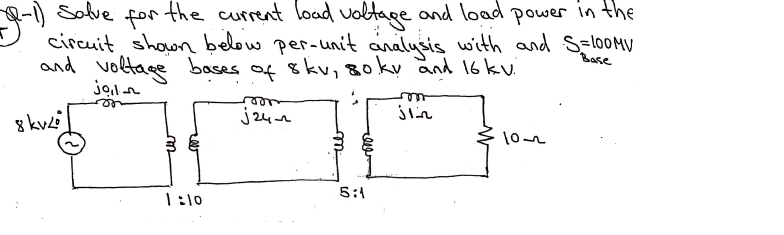 Q-1) Solve for the current load voltage and load power in the
circuit shown below per-unit analysis with and S=100MV
Base
and voltage bases of 8kv, 80kv and 16kv.
j0,1Ω
j24Ω
j1Ω
8kv∠0°
10Ω
1:10
5:1